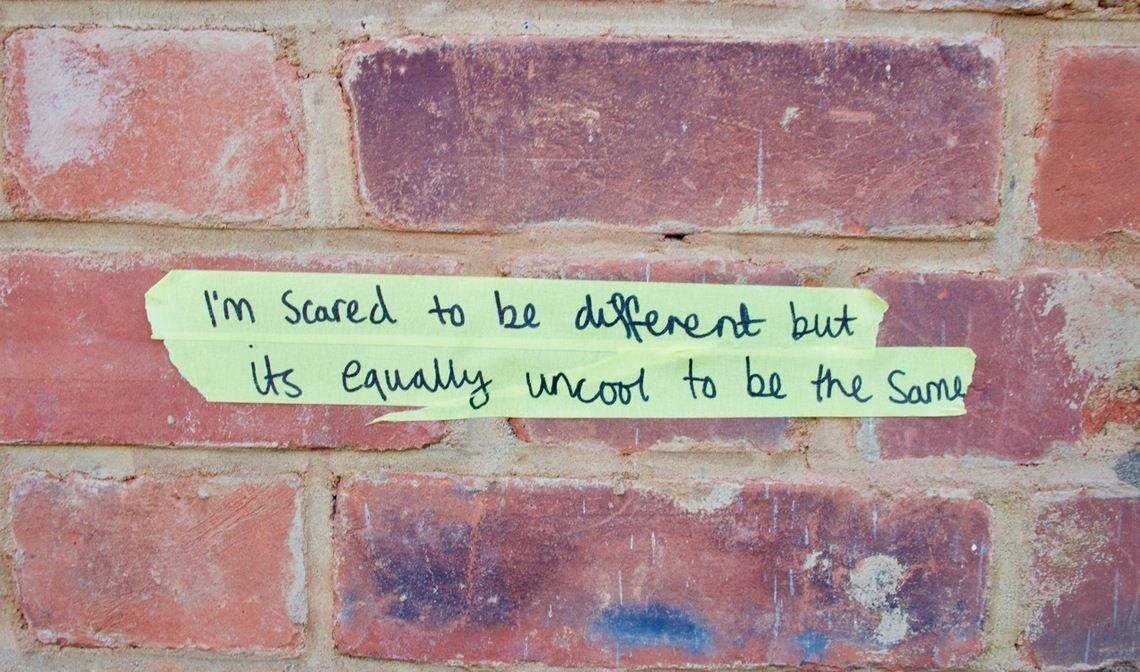 I'm scared to be different but
its equally uncool to be the same